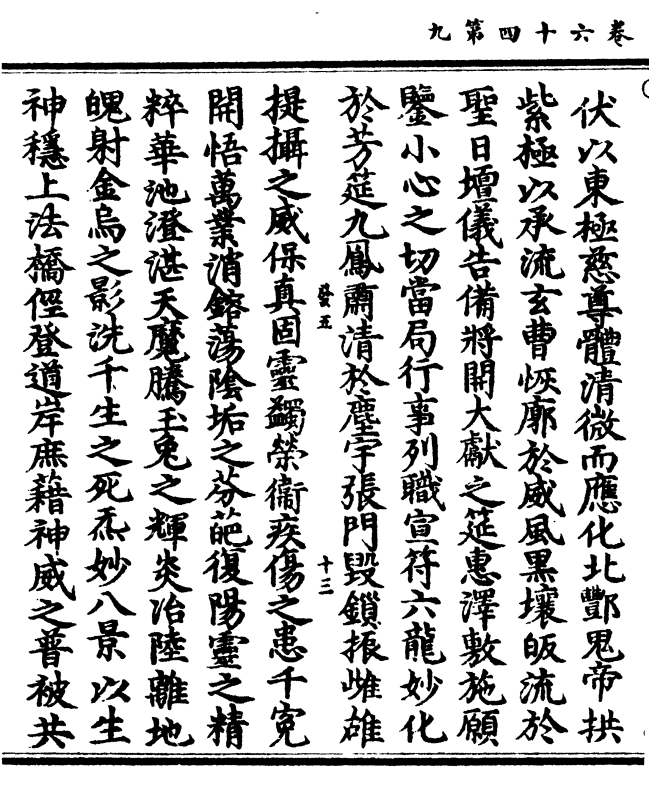 卷六十四第九
伏以東極慈尊體清微而應化北酆鬼帝拱
紫極以承流玄曹恢廓於威風黑壤皈流於
聖日壇儀告備將開大獻之筵惠澤敷施願
鑒小心之切當局行事列職宣符六龍妙化
於芳筵九鳳肅清於塵宇張門毀鎖振雌雄
發五
十三
提攝之威保真固靈蠲榮衞疾傷之患千寃
開悟萬業消鎔蕩陰垢之芬葩復陽靈之精
粹華池澄湛天魔騰玉兔之輝炎冶陸離地
魄射金烏之影洗千生之死炁妙八景以生
神穩上法橋俓登道岸庶藉神威之普被共